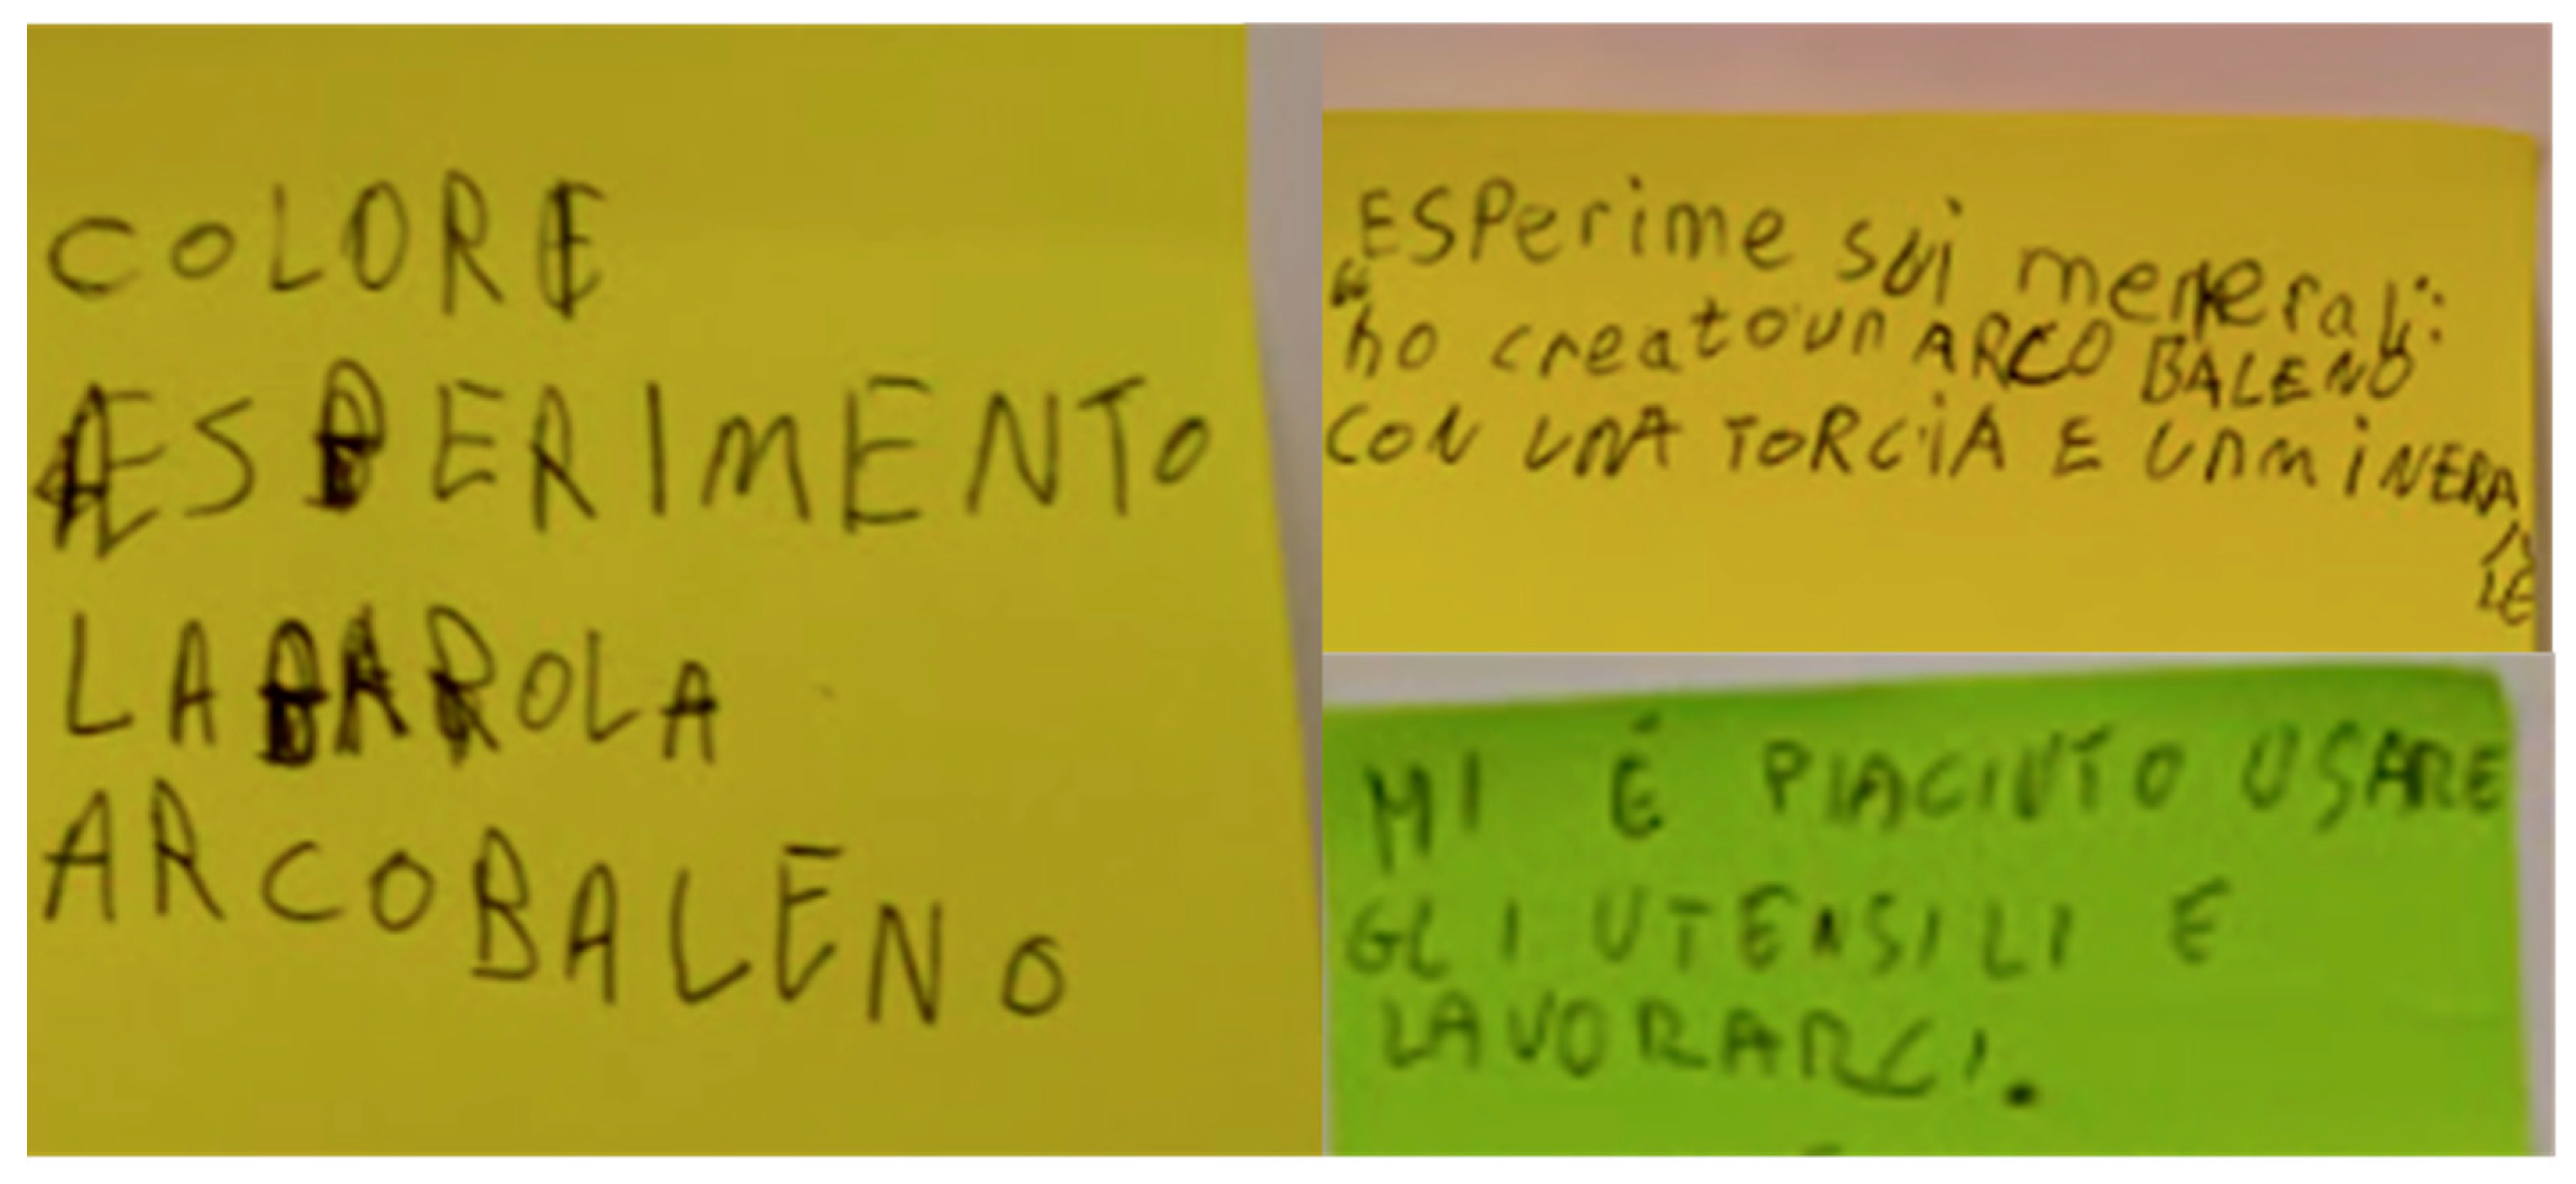 COLORE
ESPERIMENTO
LA PAROLA
ARCOBALENO
ESPerime sui menerali:
"ho creato un ARCO BALENO
CON UNA TORCIA E UN MINERA
LE
MI É PIACIUTO USARE
GLI UTENSILI E
LAVORARCI.